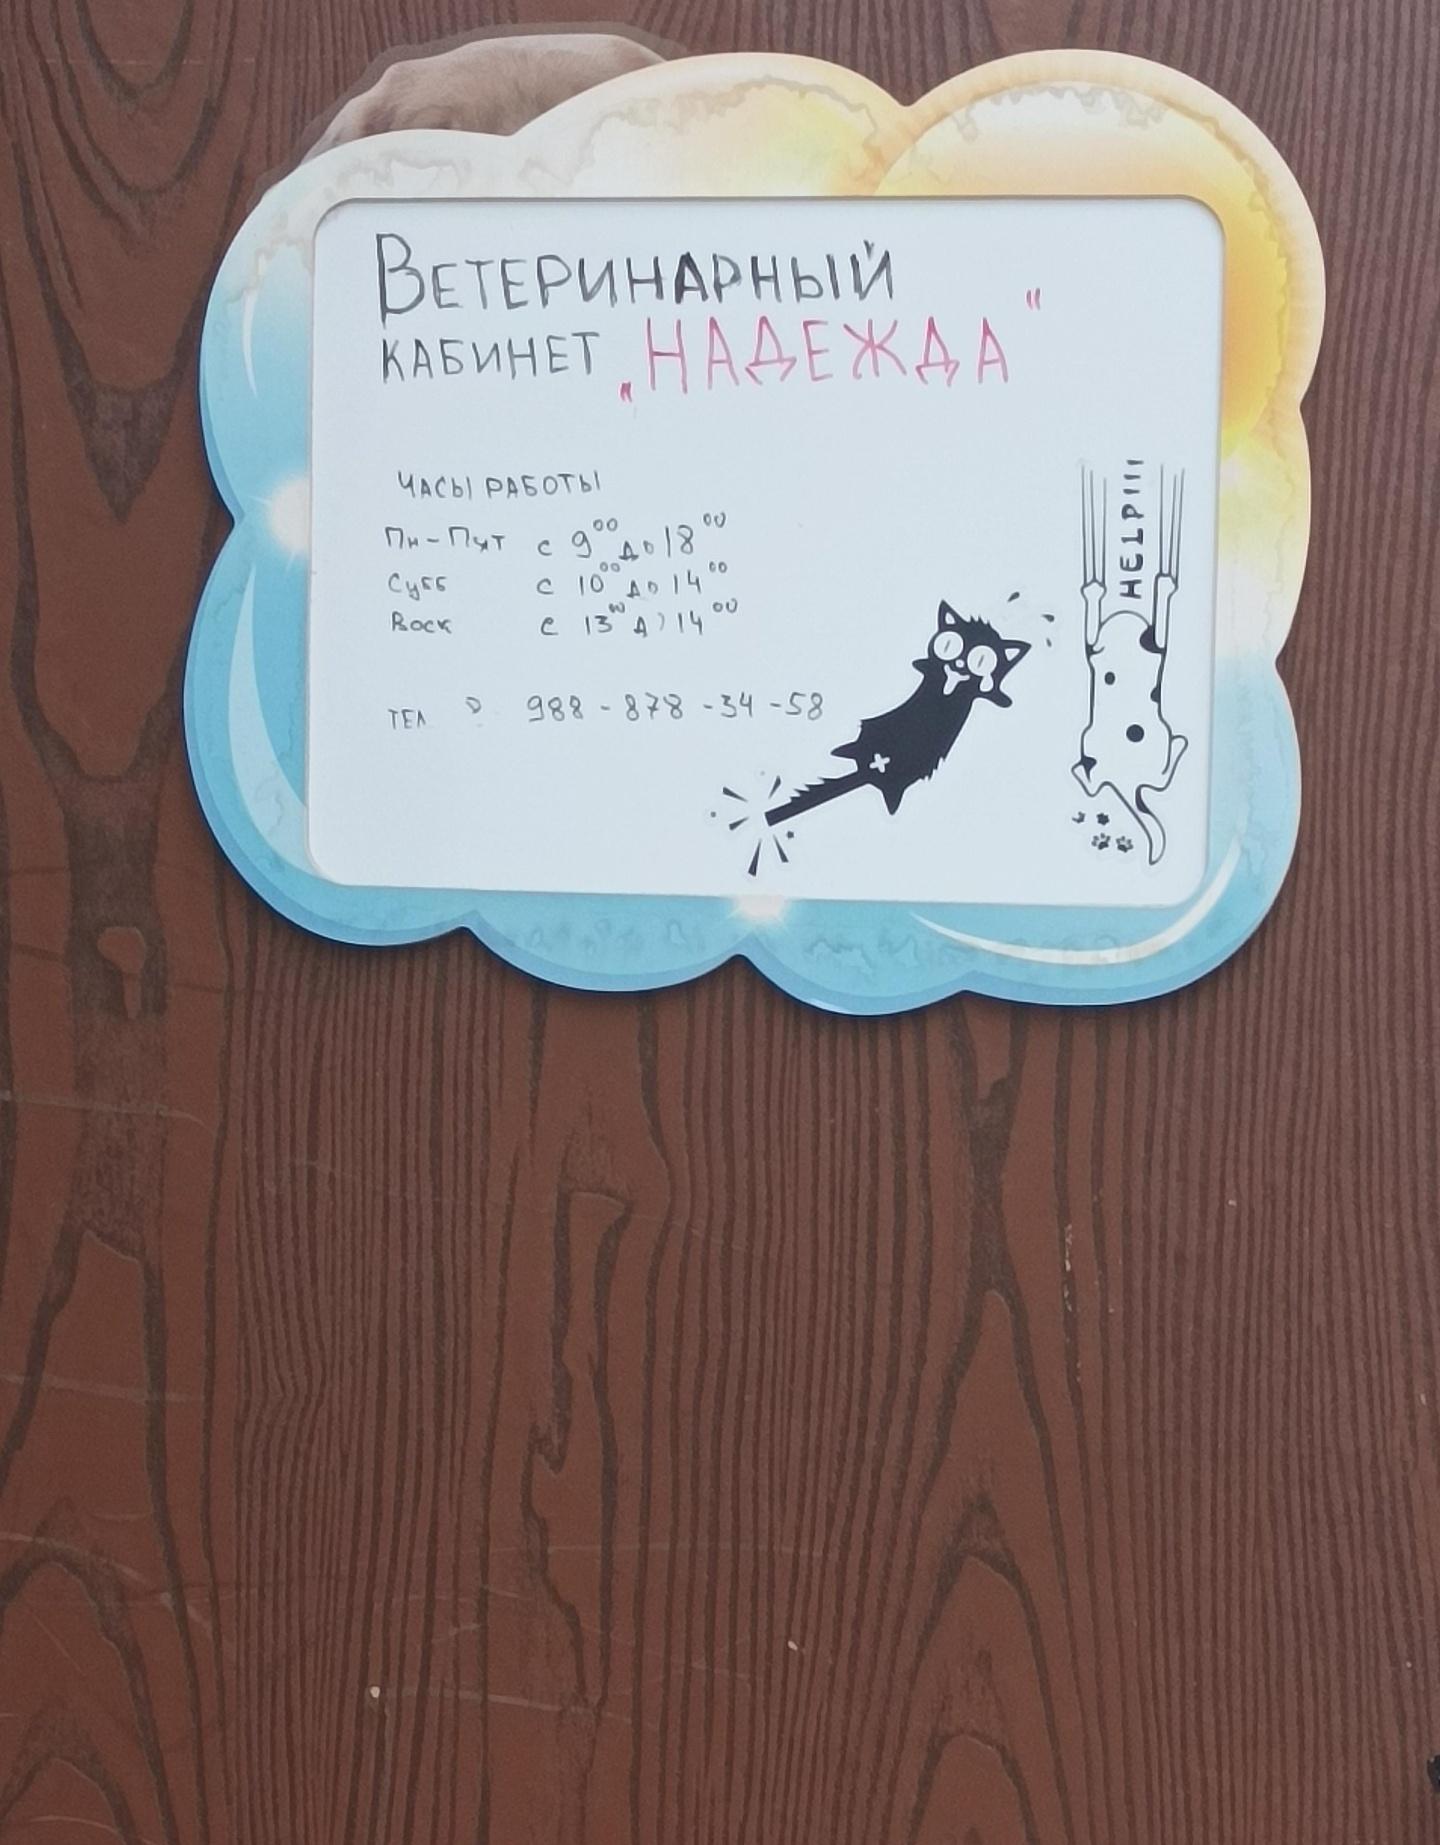 ВЕТЕРИНАРНЫЙ
КАБИНЕТ „НАДЕЖДА"
ЧАСЫ РАБОТЫ
Пн-Пят с 9⁰⁰ до 18⁰⁰
Субб с 10⁰⁰ до 14⁰⁰
Воск с 13⁰⁰ до 14⁰⁰
ТЕЛ 988-878-34-58
HELP!!!